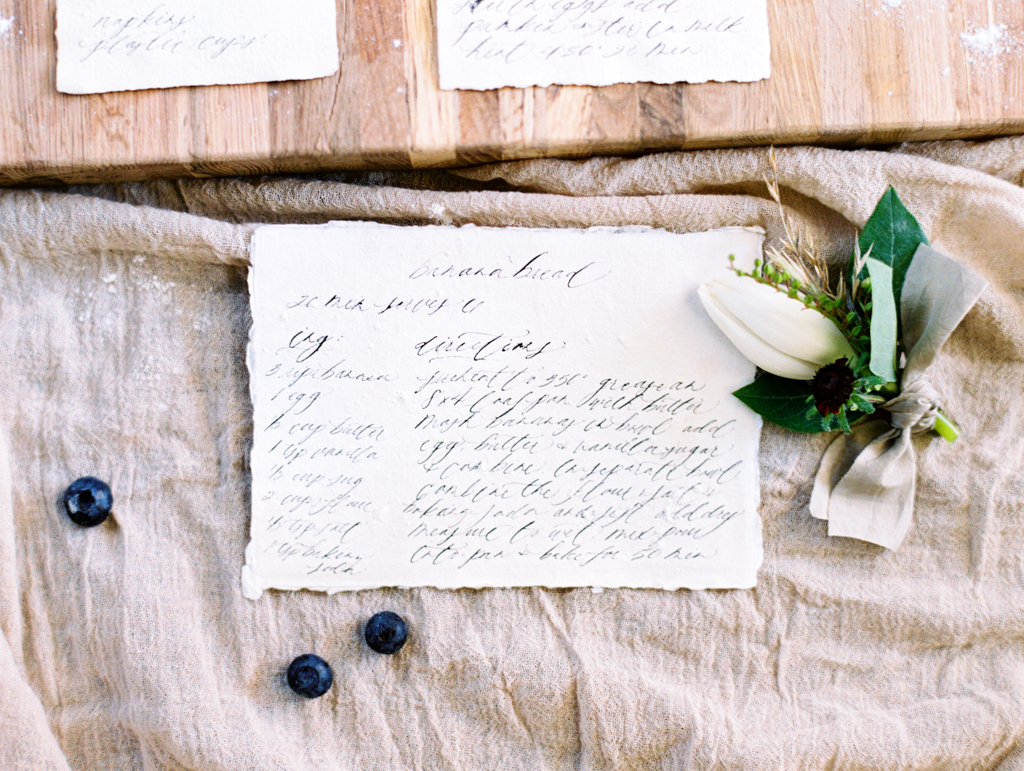 napkins
plastic cups
eggs add
pumpkin water milk
heat 450° 20 min
banana bread
20 min serves 6
ing:
directions:
3 ripe banana
1 egg
cup butter
1 tsp vanilla
cup sug
2 cups flour
tsp salt
1 tsp baking
soda
preheat to 350° grease an
8x4 loaf pan with butter
mash bananas in bowl add
egg, butter & vanilla, sugar
& combine. in separate bowl
combine the flour, salt &
baking soda and sift. add dry
measure to wet mix pour
into pan & bake for 50 min